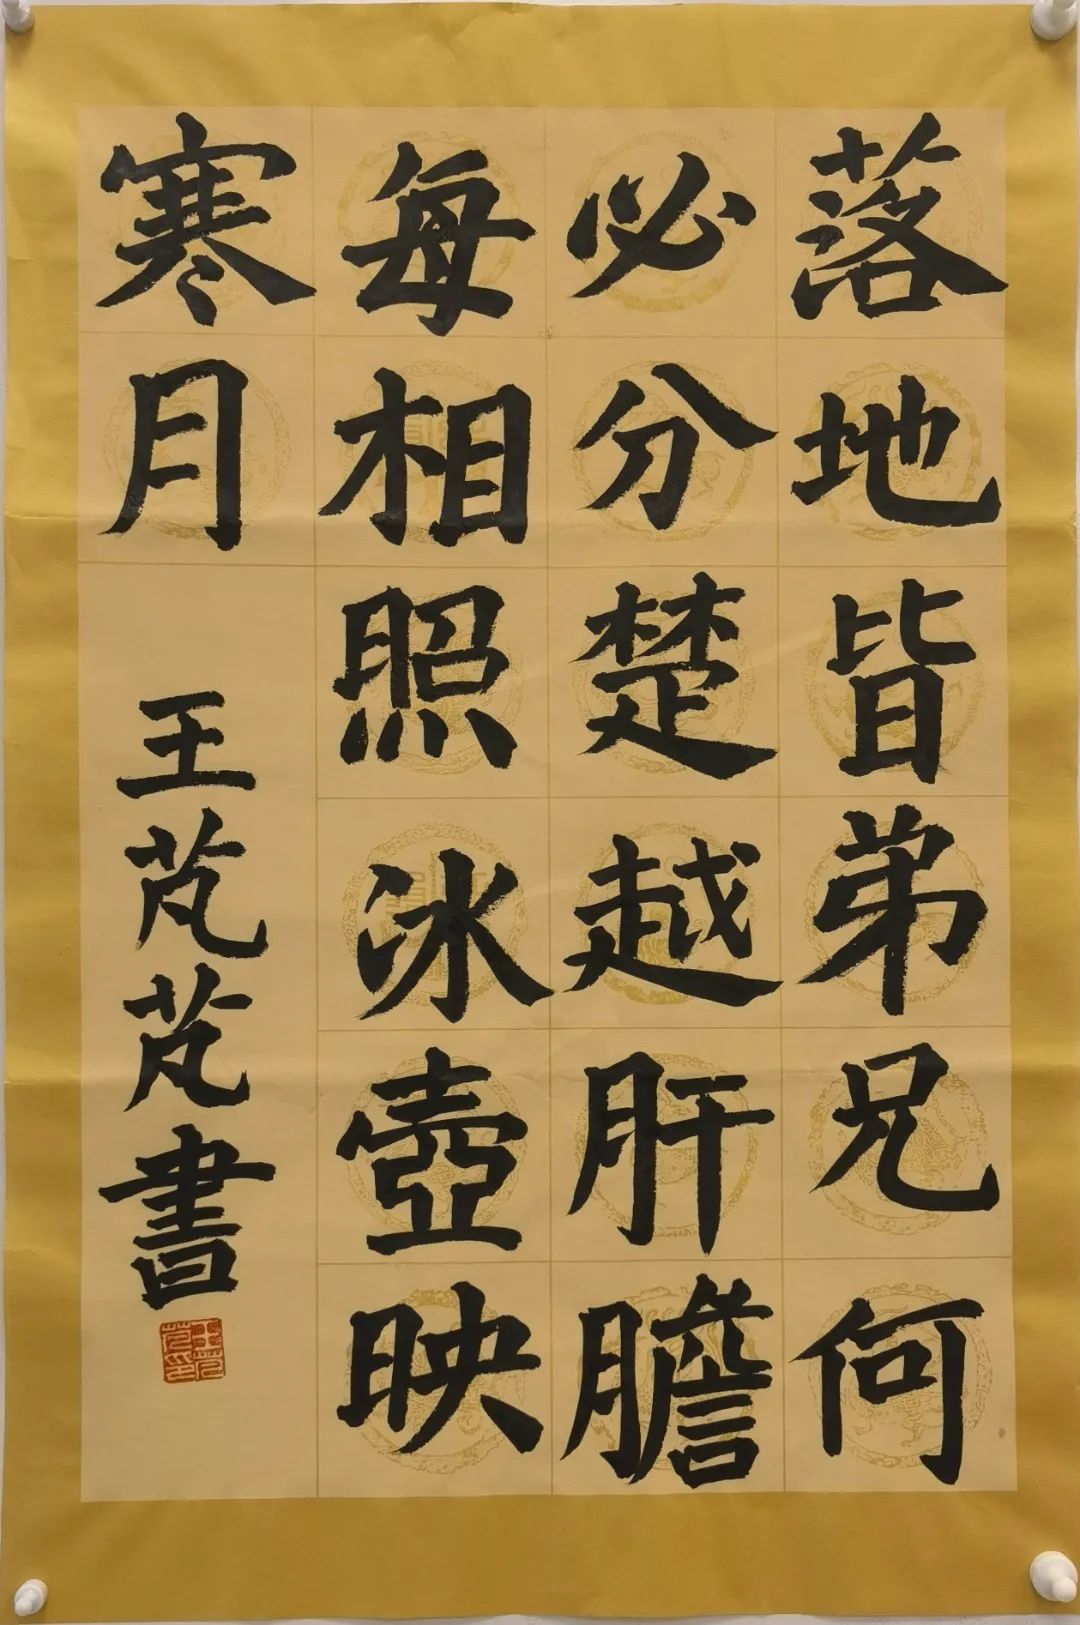 落地皆弟兄何
必分楚越肝膽
每相照冰壺映
寒月
王芃芃書